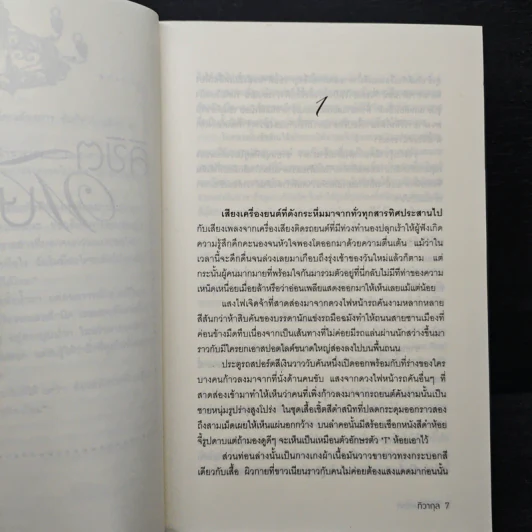 ลิขิต
1
เสียงเครื่องยนต์ที่ดังกระหึ่มมาจากทั่วทุกสารทิศประสานไป
กับเสียงเพลงจากเครื่องเสียงติดรถยนต์ที่มีท่วงทำนองปลุกเร้าให้ผู้ฟังเกิด
ความรู้สึกคึกคะนองจนหัวใจพองโตออกมาด้วยความตื่นเต้น แม้ว่าใน
เวลานี้จะดึกดื่นจนล่วงเลยมาเกือบถึงรุ่งเช้าของวันใหม่แล้วก็ตาม แต่
กระนั้นผู้คนมากมายที่พร้อมใจกันมารวมตัวอยู่ที่นี่กลับไม่มีทีท่าของความ
เหนื่อยล้าหรือว่าอ่อนเพลียแสดงออกมาให้เห็นเลยแม้แต่น้อย
แสงไฟเจิดจ้าที่สาดส่องมาจากดวงไฟหน้ารถคันงามหลากหลาย
สีสันกว่าห้าสิบคันของบรรดานักแข่งรถมือฉมังทำให้ถนนสายชานเมืองที่
ค่อนข้างมืดทึบเนื่องจากเป็นเส้นทางที่ไม่ค่อยมีรถแล่นผ่านนักสว่างขึ้นมา
ราวกับมีใครยกเอาสปอตไลต์ขนาดใหญ่ส่องลงไปบนพื้นถนน
ประตูรถสปอร์ตสีเงินวาววับคันหนึ่งเปิดออกพร้อมกับที่ร่างของใคร
บางคนก้าวลงมาจากที่นั่งด้านคนขับ แสงจากดวงไฟหน้ารถคันอื่นๆ ที่
สาดส่องเข้ามาทำให้เห็นว่าคนที่เพิ่งก้าวลงมาจากรถยนต์คันงามนั้นเป็น
ชายหนุ่มรูปร่างสูงโปร่ง ในชุดเสื้อเชิ้ตสีดำสนิทที่ปลดกระดุมออกราวสอง
ถึงสามเม็ดเผยให้เห็นแผ่นอกกว้าง บนลำคอนั้นมีสร้อยเชือกหนังสีดำห้อย
จี้รูปดาบแต่ถ้ามองดูดีๆ จะเห็นเป็นเหมือนตัวอักษรตัว 'T' ห้อยเอาไว้
ส่วนท่อนล่างนั้นเป็นกางเกงผ้าเนื้อมันวาวขายาวทรงกระบอกสี
เดียวกับเสื้อ ผิวกายที่ขาวเนียนราวกับคนไม่ค่อยต้องแสงแดดมาก่อนนั้น
ทิวากุล 7